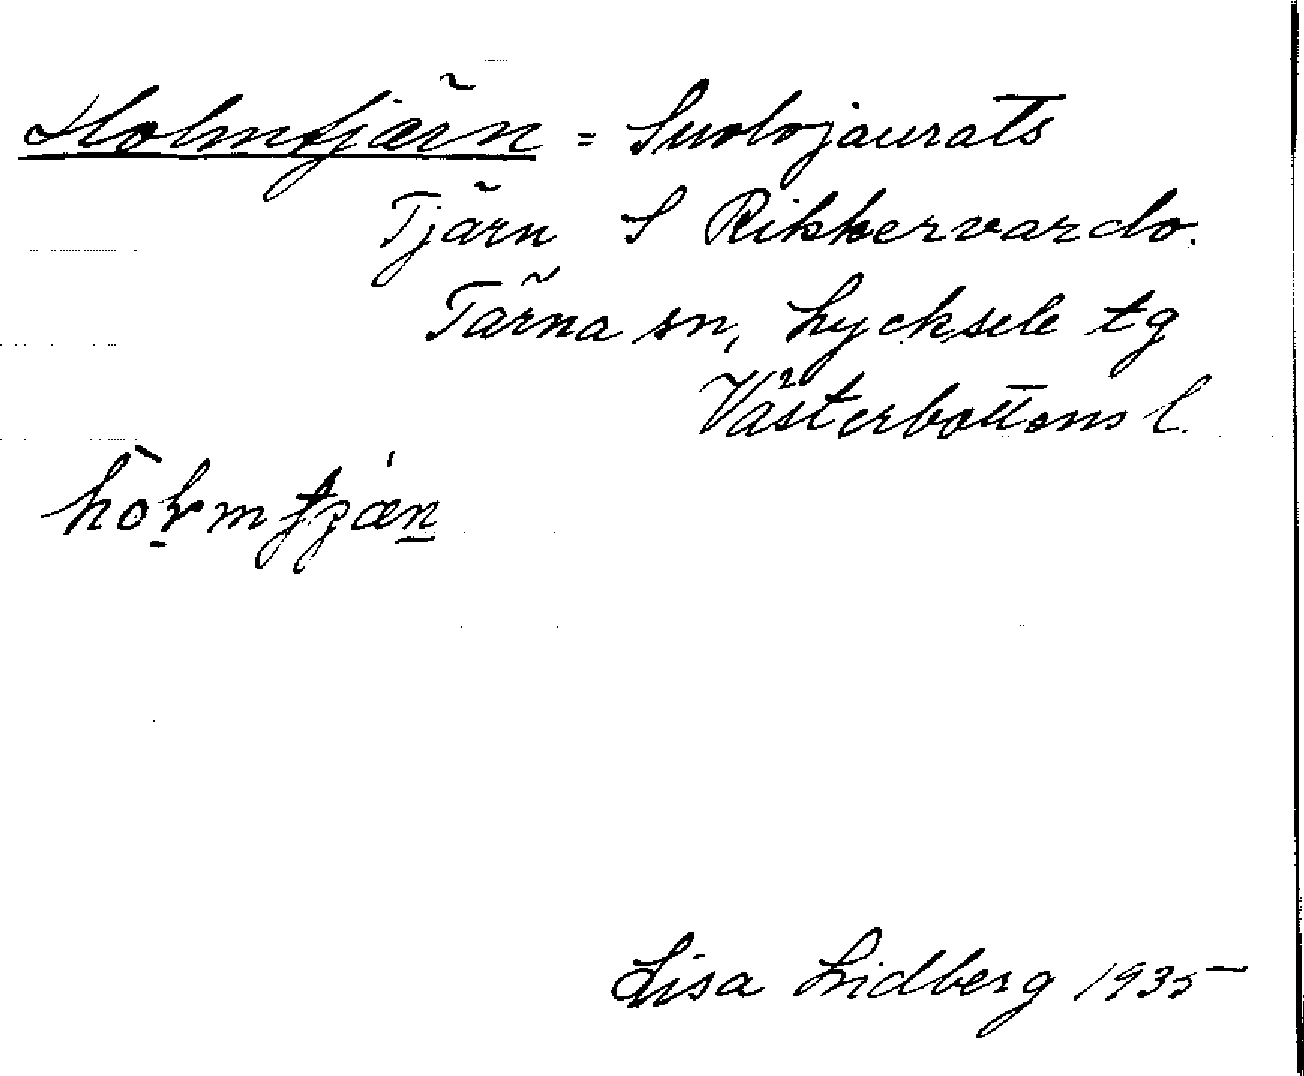 Holmtjärn = Suolojaurats
Tjärn S Rikkervardo.
Tärna sn, Lycksele tg
Västerbottens l.
hòḷmtjæ̀n̲
Lisa Lidberg 1935